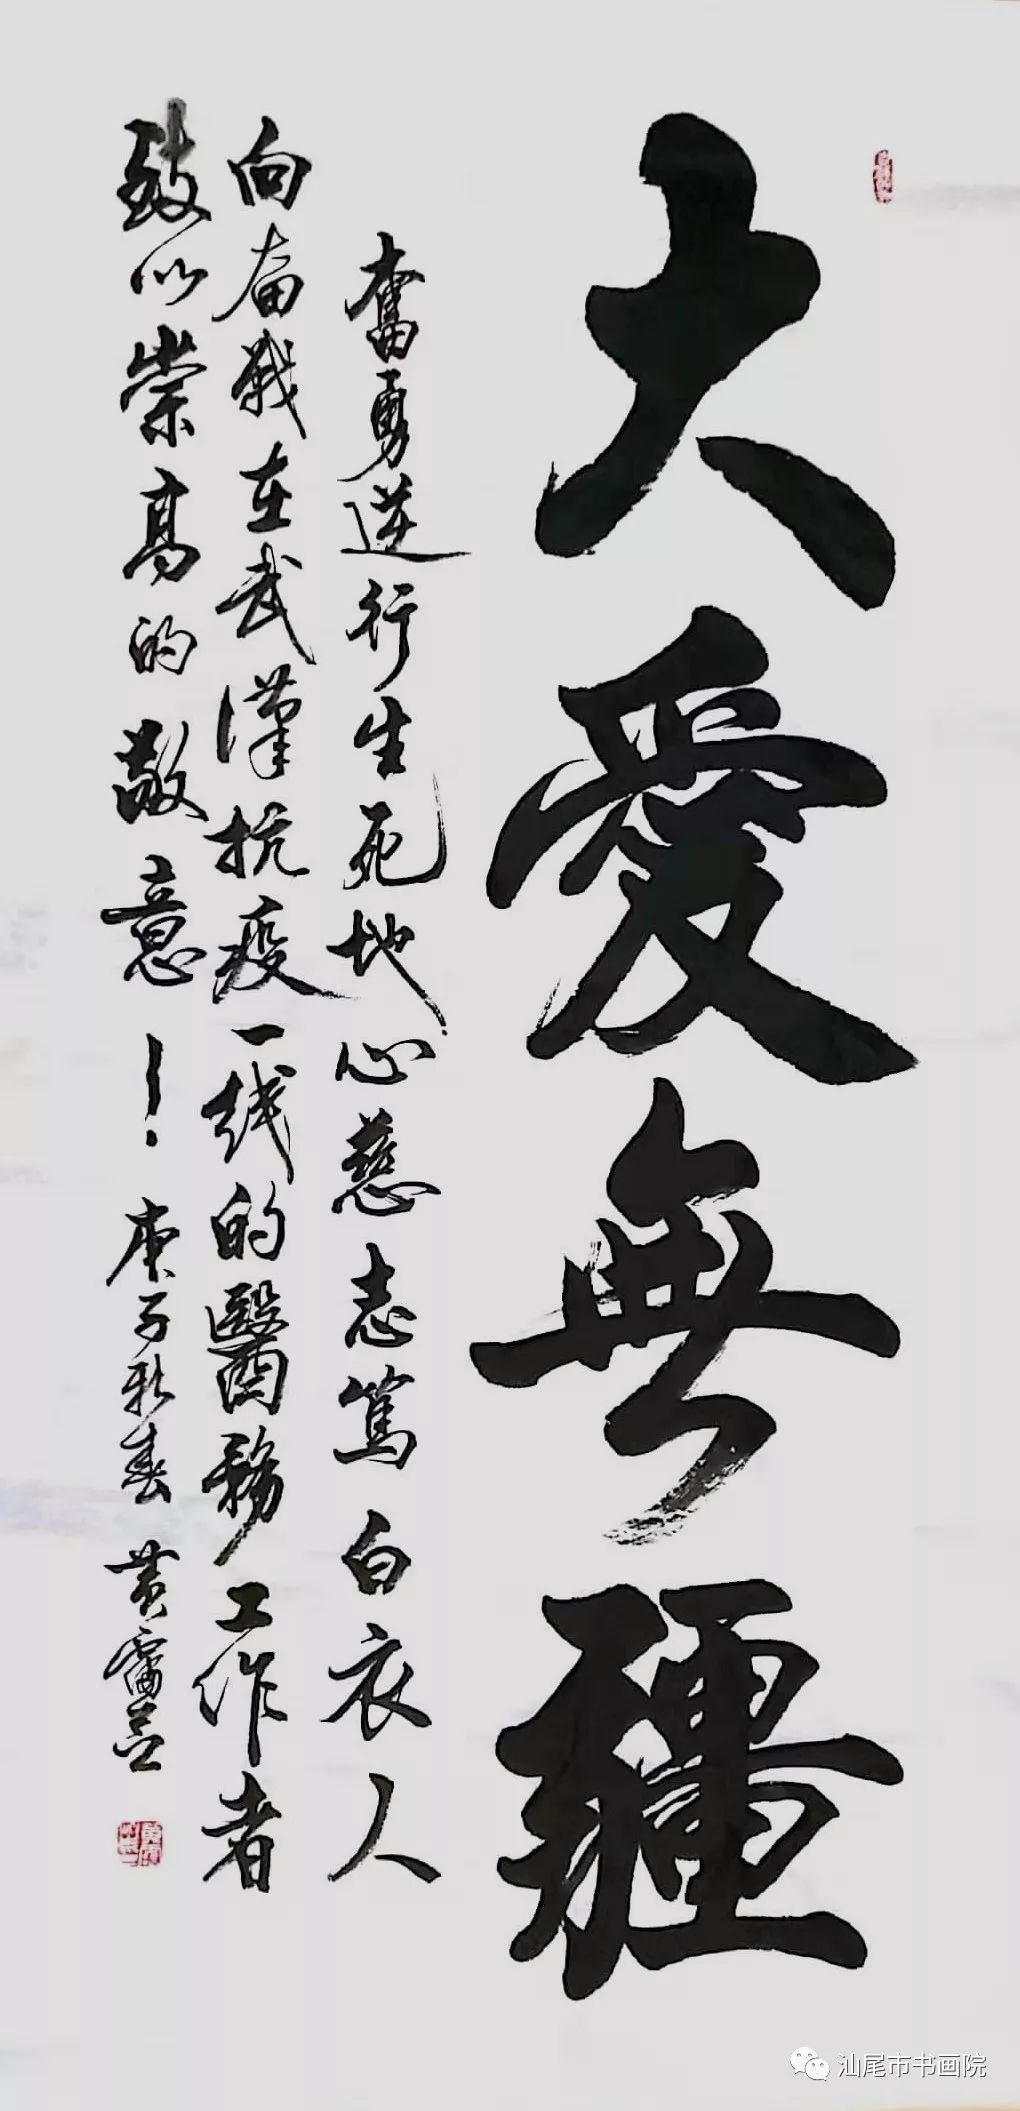 大愛無疆
奮勇逆行生死地心慈志篤白衣人
向奋戰在武漢抗疫一线的醫務工作者
致以崇高的敬意！庚子新春 黄雷
汕尾市书画院